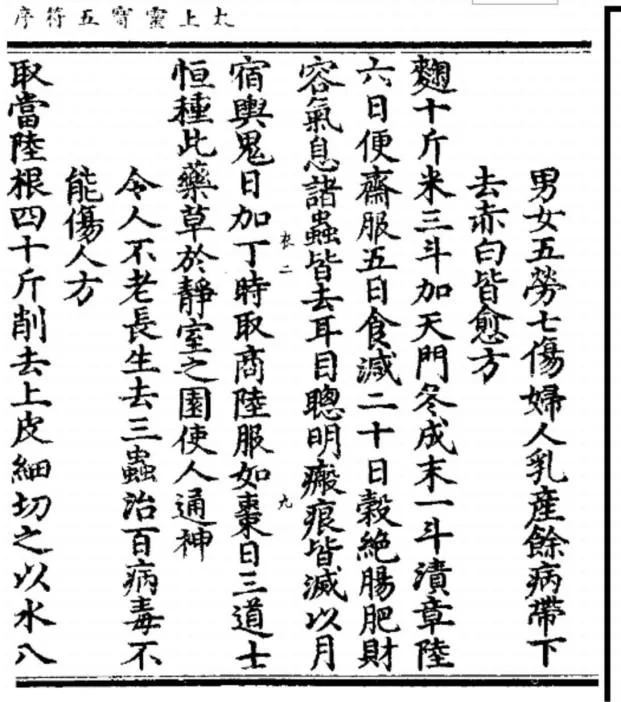 太上靈寳五符序
男女五勞七傷婦人乳産餘病帶下
去赤白皆愈方
麴十斤米三斗加天門冬成末一斗漬章陸
六日便齋服五日食減二十日穀絶腸肥財
容氣息諸蟲皆去耳目聰明瘢痕皆滅以月
宿輿鬼日加丁時取商陸服如棗日三道士
衣二
九
恒種此藥草於靜室之園使人通神
令人不老長生去三蟲治百病毒不
能傷人方
取當陸根四十斤削去上皮細切之以水八